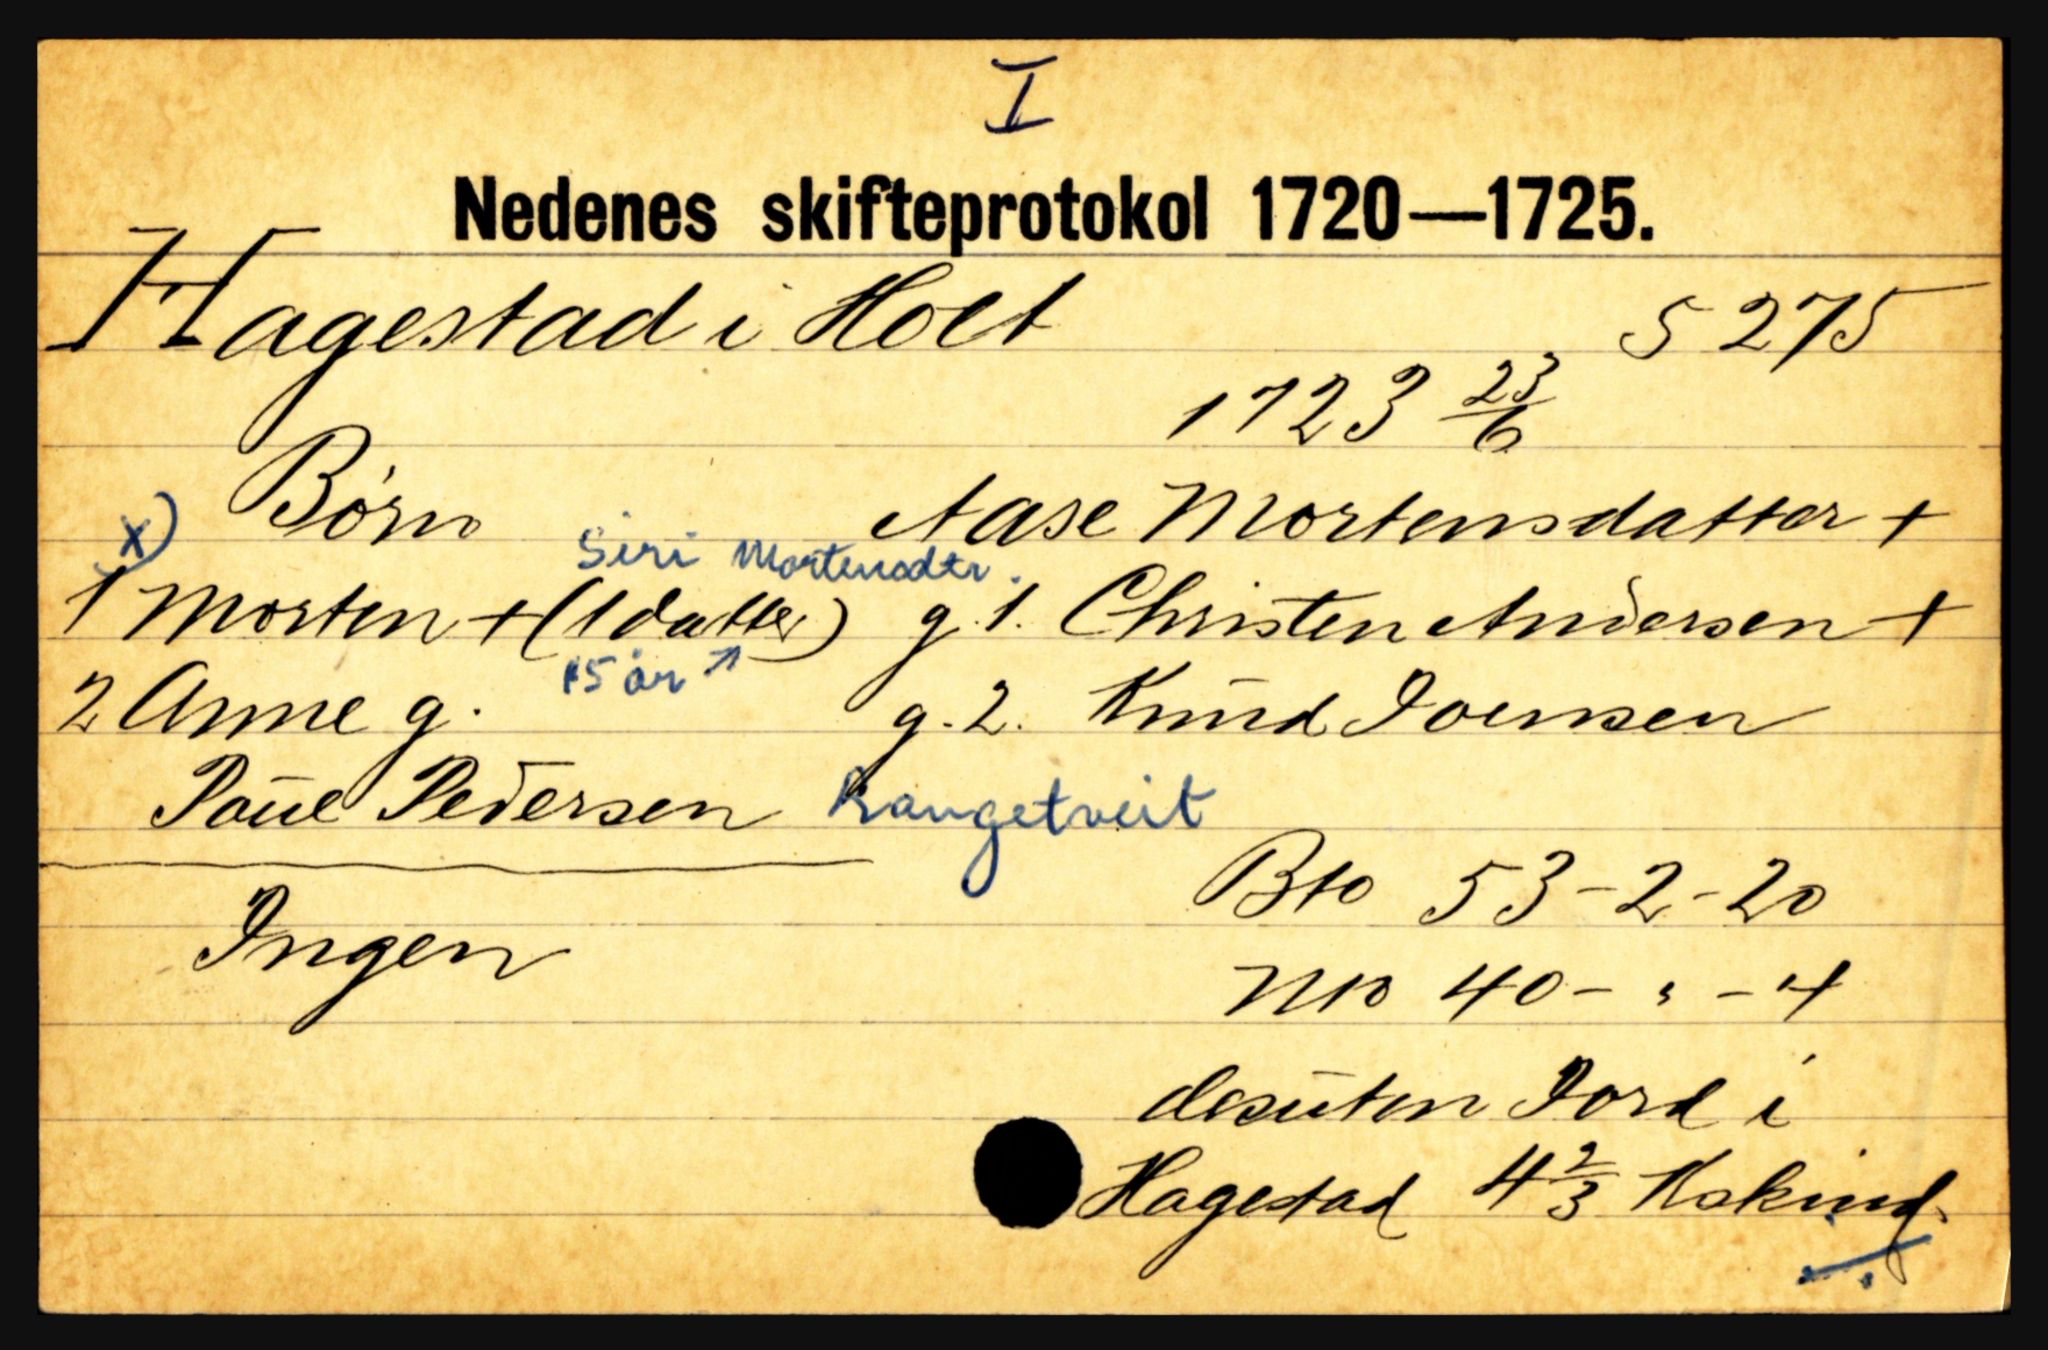 I
Nedenes skifteprotokol 1720—1725.
Hagestad i Holt 5 275
1723 23/6
Børn Aase Mortensdatter +
x) Siri Mortensdtr.
1 Morten + (1 datter) g. 1. Christen Andersen +
15 år ↗
2 Anne g. g. 2. Knud Joensen
Poul Pedersen Rangetveit
Bto 53-2-20
Ingen
Nto 40-"-4
desuten Jord i
Hagestad 4 2/3 Kskind